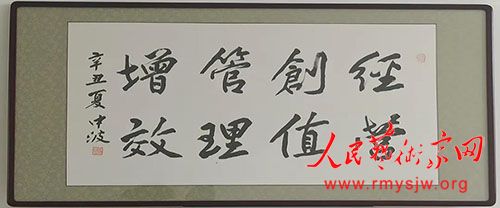 經營
創值
管理
增效
辛丑夏中波
人民艺术家网
www.rmysjw.org